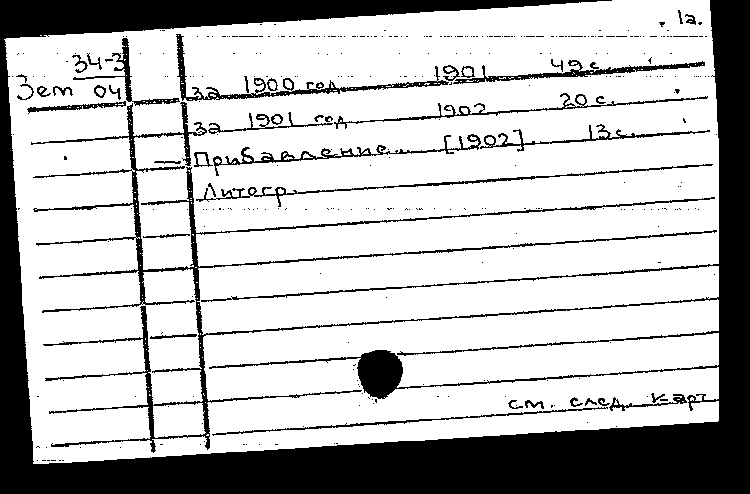 1а.
34-3
Зем 04
за 1900 год 1901 49 с.
за 1901 год 1902 20 с.
— Прибавление... [1902]. 13 с.
Литогр.
см. след. карт